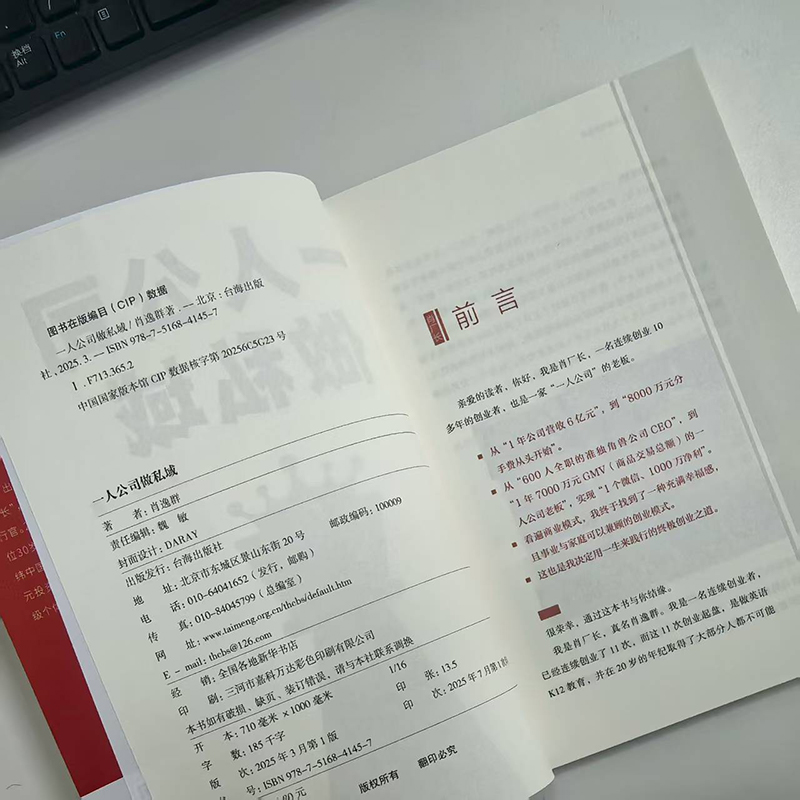 换档
Alt
Fn
图书在版编目(CIP)数据
一人公司做私域/肖逸群著. —北京:台海出版
社, 2025.3. — ISBN 978-7-5168-4145-7
Ⅰ. F713.365.2
中国国家版本馆CIP数据核字第20256C5G23号
一人公司做私域
著 者:肖逸群
责任编辑:魏 敏
封面设计:DARAY
出版发行:台海出版社
地 址:北京市东城区景山东街20号 邮政编码:100009
电 话:010-64041652(发行,邮购)
传 真:010-84045799(总编室)
网 址:www.taimeng.org.cn/thcbs/default.htm
E-mail:thcbs@126.com
经 销:全国各地新华书店
印 刷:三河市嘉科万达彩色印刷有限公司
本书如有破损、缺页、装订错误,请与本社联系调换
开 本:710毫米×1000毫米 1/16
字 数:185千字 印 张:13.5
版 次:2025年3月第1版 印 次:2025年7月第1
号:ISBN 978-7-5168-4145-7
80元
版权所有 翻印必究
前言
亲爱的读者,你好,我是肖厂长,一名连续创业10
多年的创业者,也是一家“一人公司”的老板。
从“1年公司营收6亿元”,到“8000万元分
手费从头开始”。
从“600人全职的准独角兽公司CEO”,到
“1年7000万元GMV(商品交易总额)的一
人公司老板”,实现“1个微信、1000万净利”。
看遍商业模式,我终于找到了一种充满幸福感,
且事业与家庭可以兼顾的创业模式。
这也是我决定用一生来践行的终极创业之道。
很荣幸,通过这本书与你结缘。
我是肖厂长,真名肖逸群。我是一名连续创业者,
已经连续创业了11次,而这11次创业起盘,是做英语
K12教育,并在20岁的年纪取得了大部分人都不可能